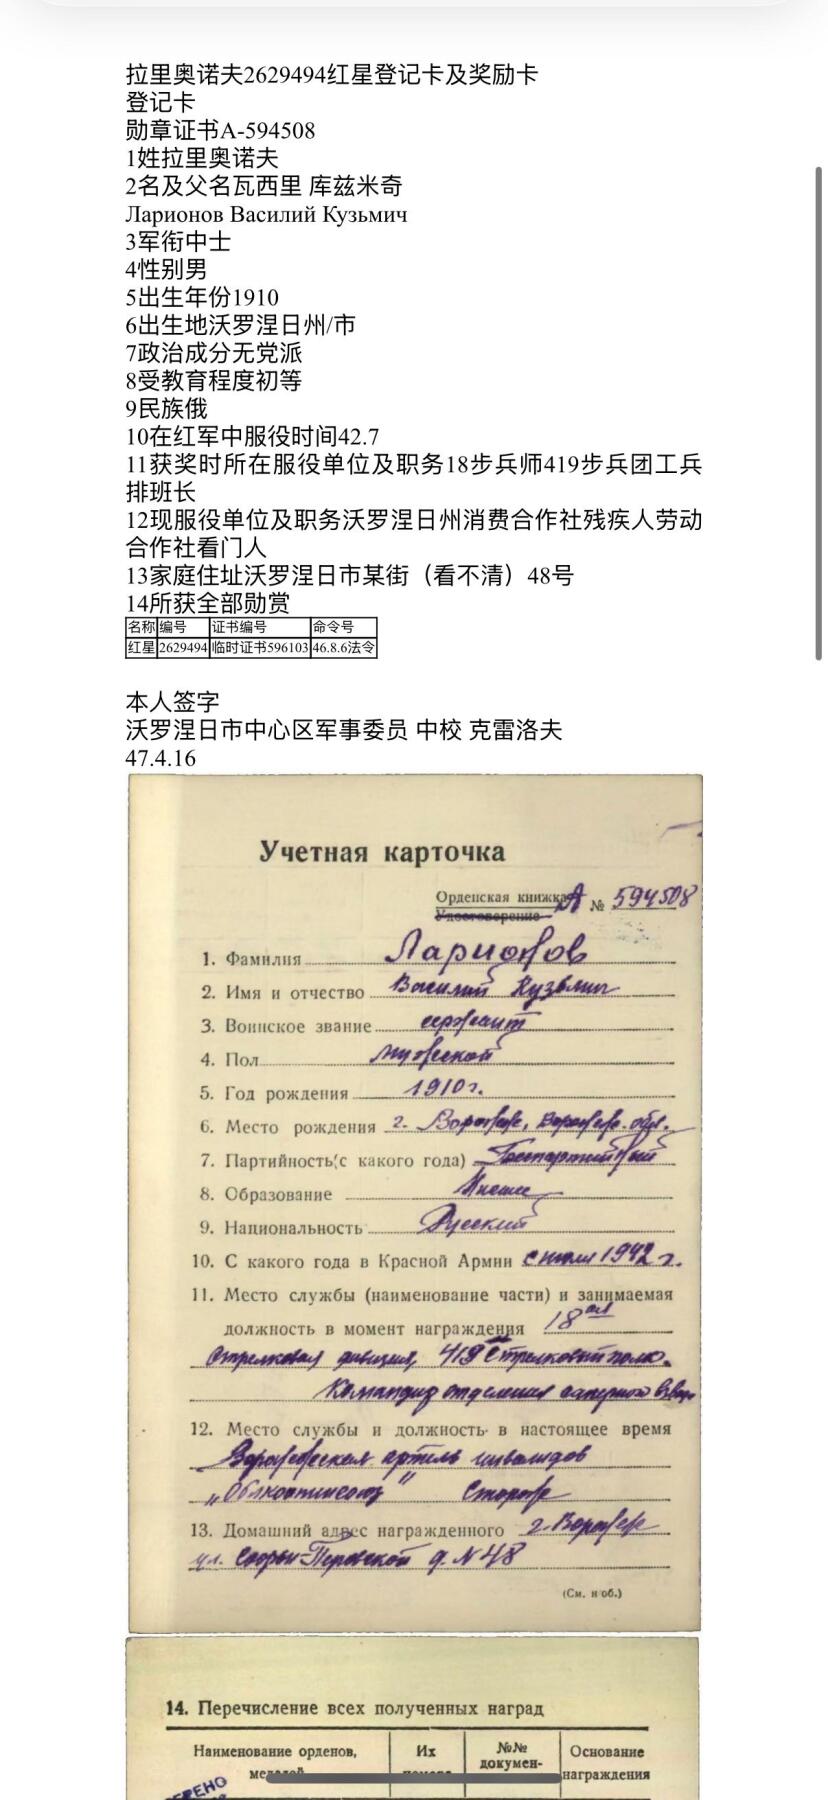 拉里奥诺夫2629494红星登记卡及奖励卡
登记卡
勋章证书A-594508
1姓拉里奥诺夫
2名及父名瓦西里 库兹米奇
Ларионов Василий Кузьмич
3军衔中士
4性别男
5出生年份1910
6出生地沃罗涅日州/市
7政治成分无党派
8受教育程度初等
9民族俄
10在红军中服役时间42.7
11获奖时所在服役单位及职务18步兵师419步兵团工兵
排班长
12现服役单位及职务沃罗涅日州消费合作社残疾人劳动
合作社看门人
13家庭住址沃罗涅日市某街（看不清）48号
14所获全部勋赏
名称 编号 证书编号 命令号
红星 2629494 临时证书596103 46.8.6法令
本人签字
沃罗涅日市中心区军事委员 中校 克雷洛夫
47.4.16
Учетная карточка
Орденская книжка А № 594508
Удостоверение
1. Фамилия Ларионов
2. Имя и отчество Василий Кузьмич
3. Воинское звание сержант
4. Пол мужской
5. Год рождения 1910г.
6. Место рождения г. Воронеж, Воронеж. обл.
7. Партийность(с какого года) Беспартийный
8. Образование Низшее
9. Национальность Русский
10. С какого года в Красной Армии с июля 1942 г.
11. Место службы (наименование части) и занимаемая
должность в момент награждения 18ая
стрелковая дивизия, 419 стрелковый полк.
Командир отделения саперного взвода
12. Место службы и должность в настоящее время
Воронежская артель инвалидов
" Сторож
13. Домашний адрес награжденного г. Воронеж
ул. Софьи-Перовской д. N 48
(См. н об.)
14. Перечисление всех полученных наград
Наименование орденов, Их №№ Основание
докумен- награждения